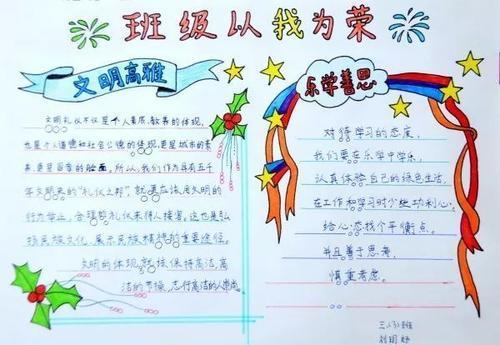 班级以我为荣
文明高雅
文明礼仪不仅是个人素质、教养的体现,
也是个人道德和社会公德的体现,更是城市的素
养,更是国家的脸面。所以,我们作为具有五千
年文明史的“礼仪之邦”,就更应该用文明的
行为举止,合理的礼仪来待人接客。这也是弘
扬民族文化、展示民族精神的重要途径。
文明的体现就应保持高洁、高
洁的节操,志行高洁的人
乐学善思
对待学习的态度,
我们要在乐学中学乐,
认真体验自己的绿色生活,
在工作和学习时少些功利心,
给心态找个平衡点。
并且善于思考,
慎重考虑。
三(3)班
刘玥